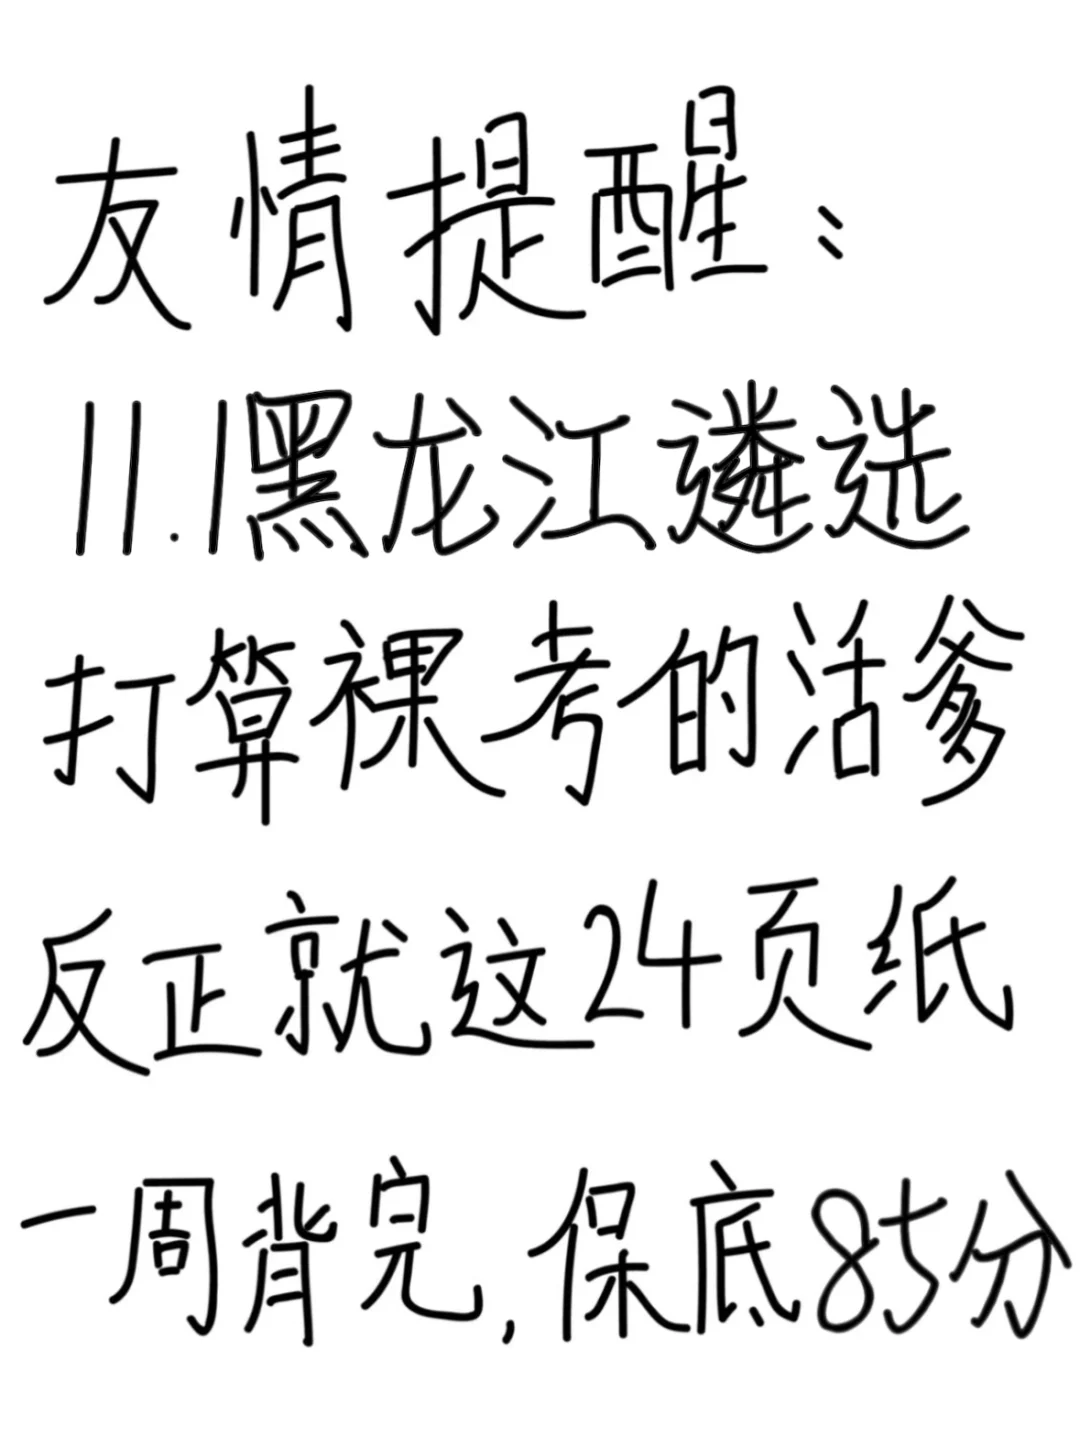 友情提醒：
11.1黑龙江遴选
打算裸考的活爹
反正就这24页纸
一周背完,保底85分